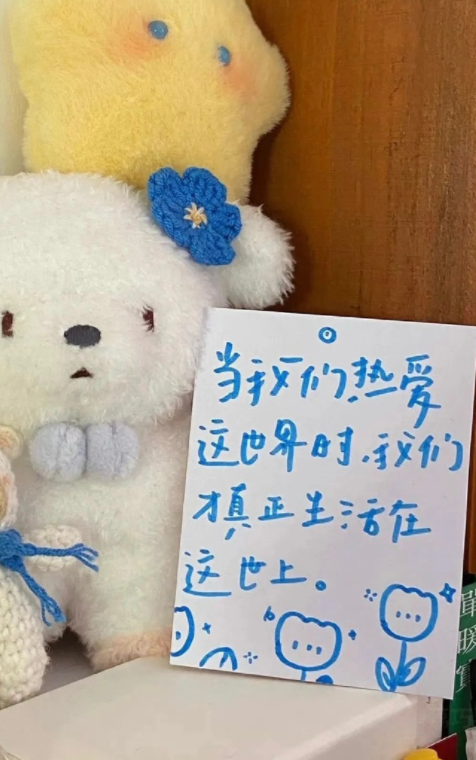 当我们热爱
这世界时,我们
才真正生活在
这世上。